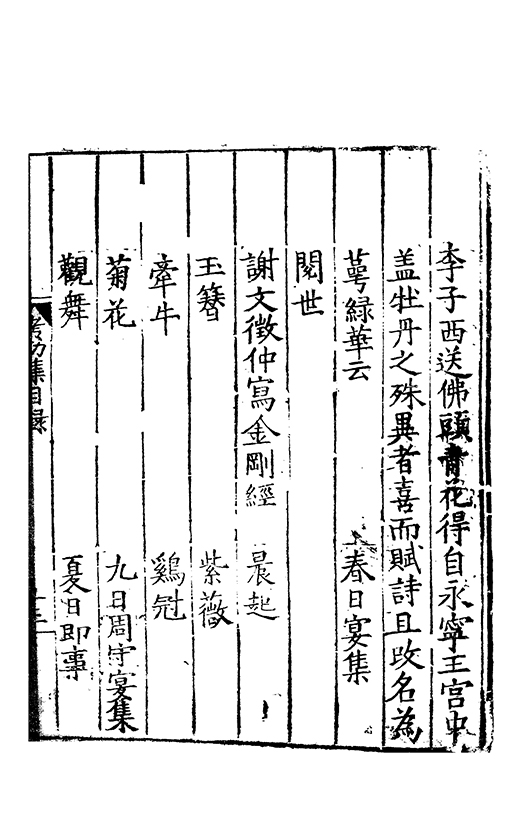 李子西送佛頭青花得自永寧王宮中
盖牡丹之殊異者喜而賦詩且改名為
萼緑華云　春日宴集
閱世
謝文徵仲寫金剛經　晨起
玉簪　紫薇
牽牛　鷄冠
菊花　九日周守宴集
觀舞　夏日即事
集目録